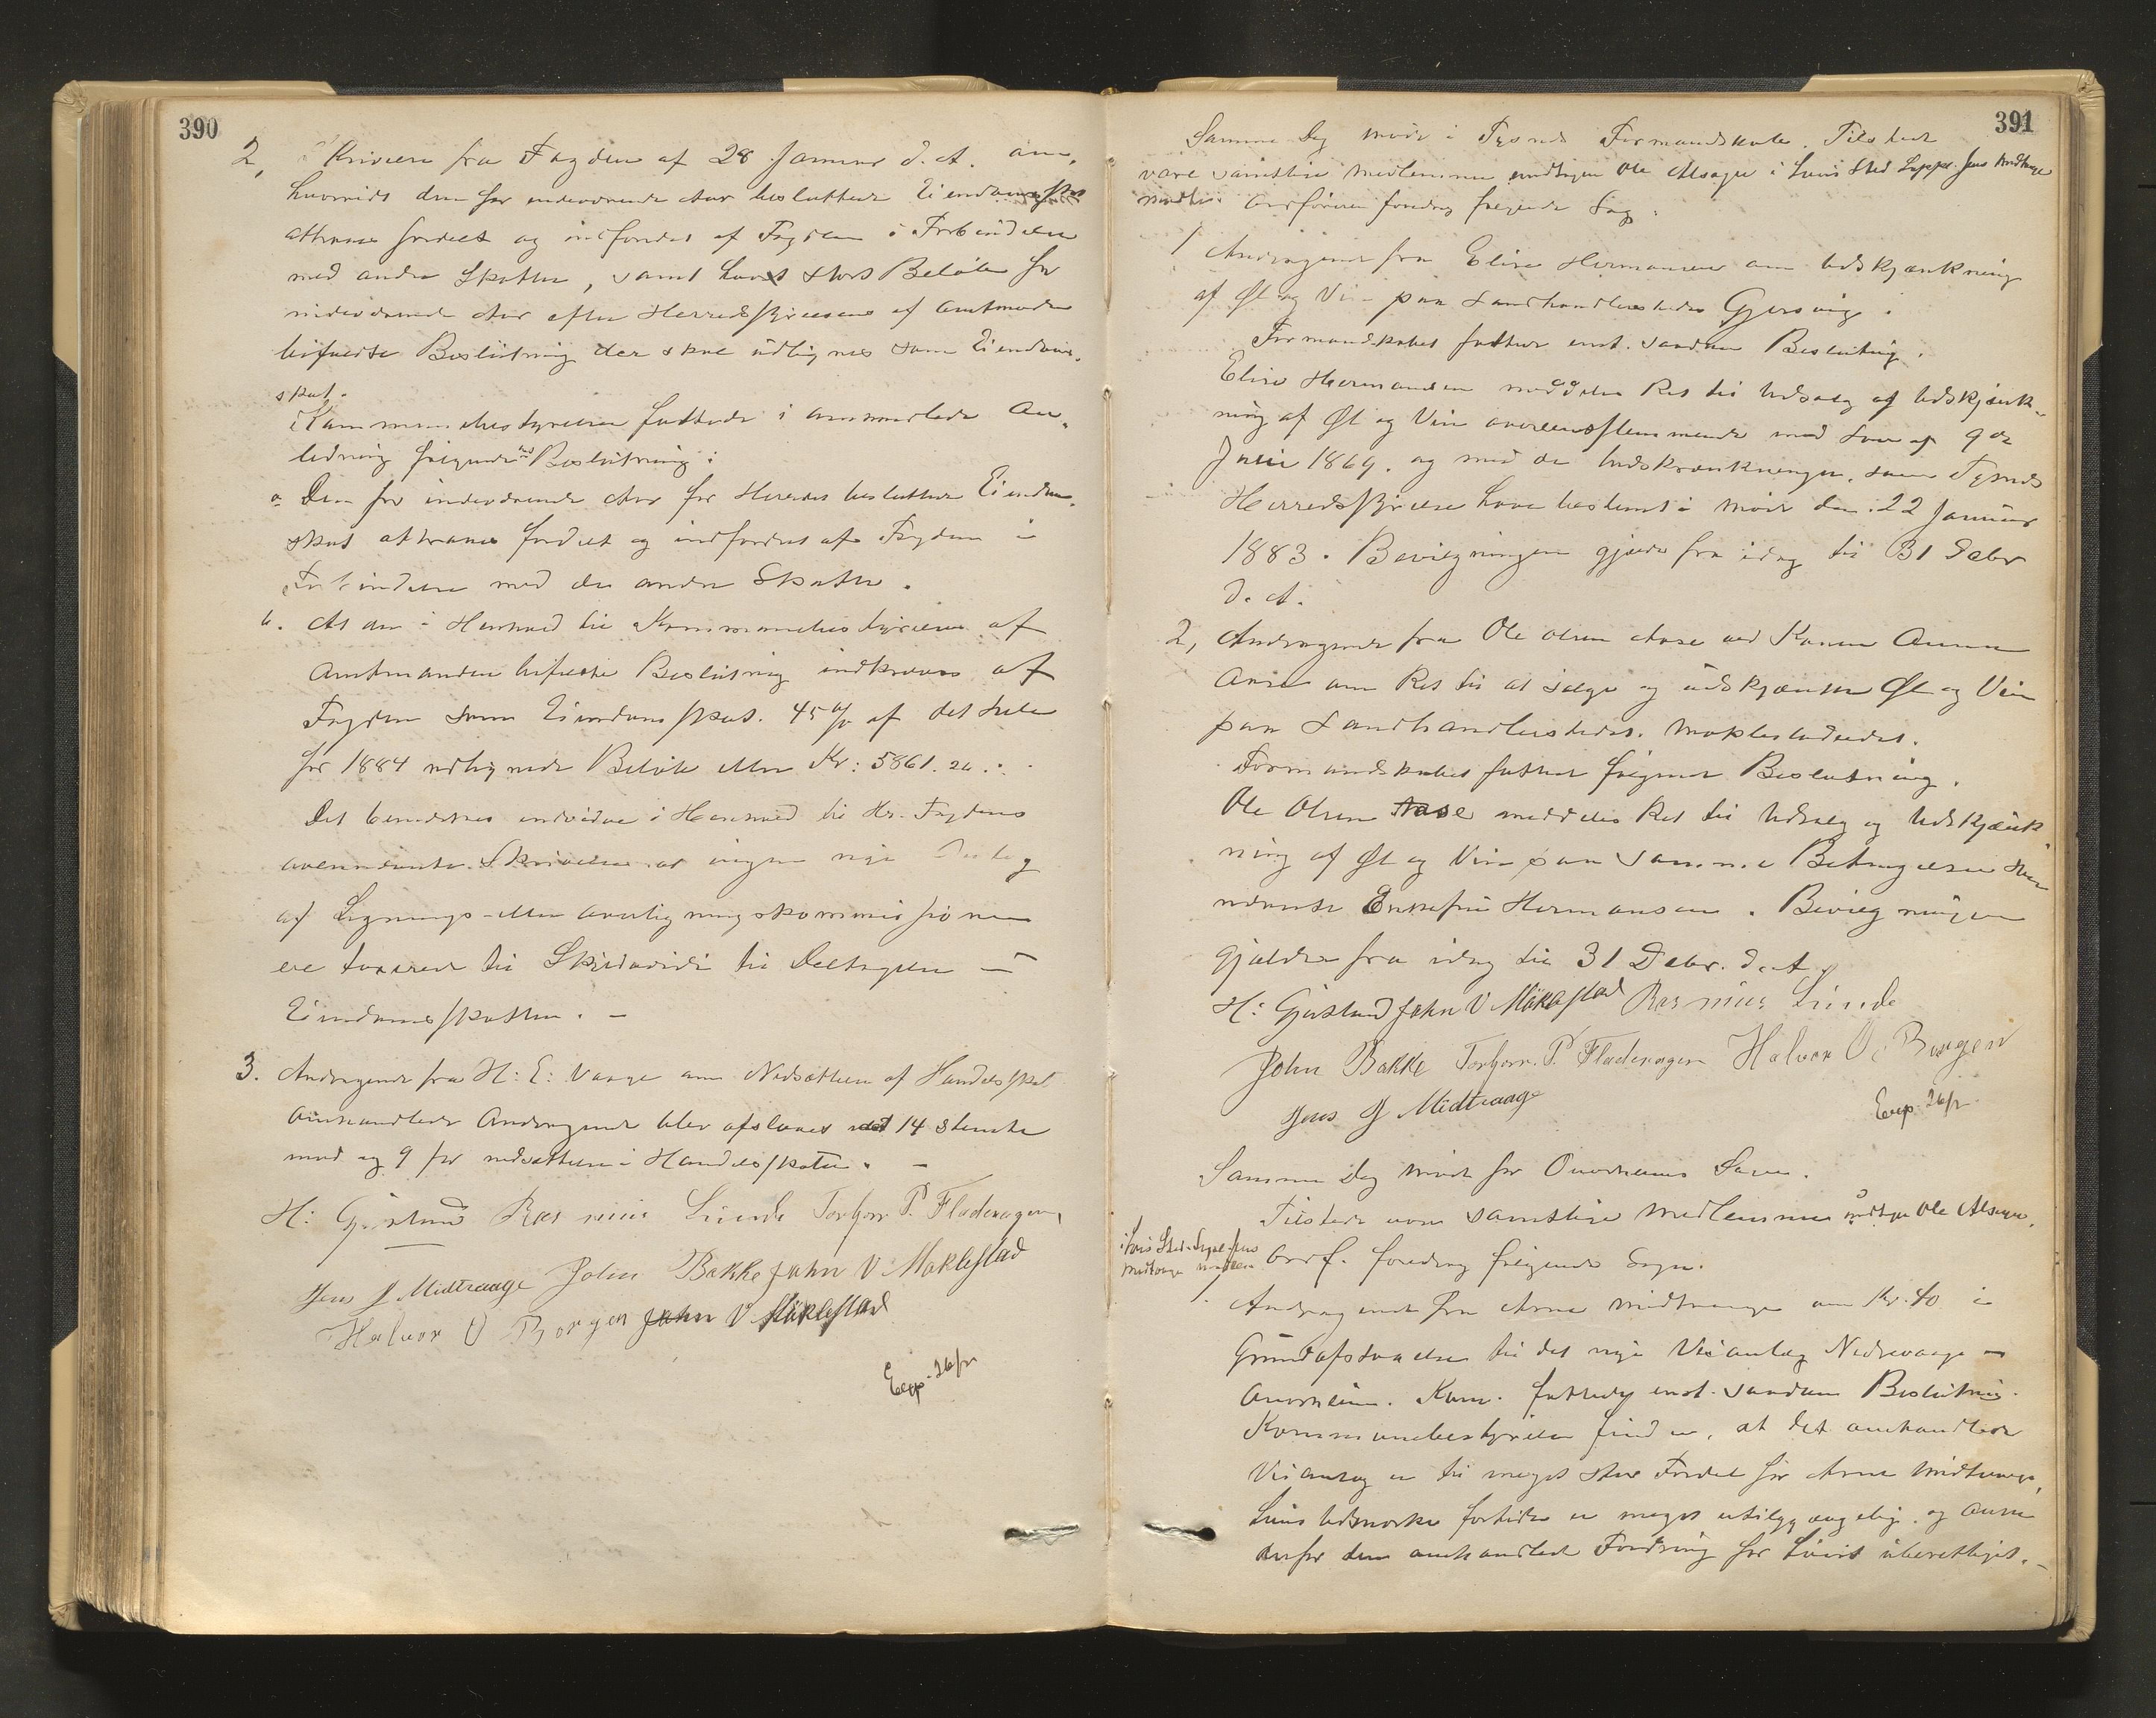 390
2, Skrivelse fra Fogden af 28 Januar d. A. om,
hvorvidt den for indeværende Aar besluttede Eiendomsskat
attraaes fordelt og indfordret af Fogden i Forbindelse
med andre Skatter, samt hvort stort Beløb for
indeværende Aar efter Herredsstyrelsens af Amtmanden
bifaldte Beslutning der skal udlignes som Eiendoms-
skat.
Kommunebestyrelsen fattede i ommeldte An-
ledning følgende Beslutning:
a Den for indeværende Aar for Herredet besluttede Eiendoms-
skat attraaes fordelt og indfordret af Fogden i
Forbindelse med de andre Skatter.
b. At der i Henhold til Kommunebestyrelsens af
Amtmanden bifaldte Beslutning indkræves af
Fogden som Eiendomsskat. 45 % af det hele
for 1884 udlignede Beløb eller Kr: 5861.20.
Det bemærkes endvidere i Henhold til Hr. Fogdens
ovennævnte Skrivelse at ingen nye Anlæg
af Lignings- eller Overligningskommissionen
ere taxerede til Skyldværdi til Deltagelse i
Eiendomsskatten. -
3. Andragende fra H: E: Vaage om Nedsættelse af Handelsskat
Omhandlede Andragende blev afslaaet med 14 Stemmer
mod og 9 for nedsættelse i Handelsskatten. -
H: Gjerstad Rasmus Lunde Torbjørn P. Fladeragen
Jens J Midtvaage John Bakke John V Møklestad
Halvor O Borgen John V Møklestad
Exp. 26/2
391
Samme Dag Møde i Tysnæs Formandskab. Tilstede
vare samtlige Medlemmer undtagen Ole Alsager i hvis Sted Suppl. Jens Midtvaage
mødte. Ordføreren foredrog følgende Sag:
1 Andragende fra Elise Hermansen om Udskjænkning
af Øl og Vin paa Landhandlerstedet Gjersvig.
Formandskabet fattede enst. saadan Beslutning.
Elise Hermansen meddeles Ret til Udsalg og Udskjænk-
ning af Øl og Vin overensstemmende med Lov af 9de
Juni 1869. og med de Indskrænkninger, som Tysnæs
Herredsstyrelse have bestemt i Møde den 22 Januar
1883. Bevilgningen gjælder fra idag til 31 Debr
d. A.
2, Andragende fra Ole Olsen Aase ved Konen Anna
Aase om Ret til at sælge og udskjænke Øl og Vin
paa Landhandlerstedet Møklestadeidet.
Formandskabet fattede følgende Beslutning.
Ole Olsen Aase meddeles Ret til Udsalg og Udskjænk-
ning af Øl og Vin paa samme Betingelser som
nævnte Enkefru Hermansen. Bevilgningen
gjælder fra idag til 31 Debr. d. A.
H: Gjerstad John V Møklestad Rasmus Lunde
John Bakke Torbjørn P. Fladeragen Halvor O. Borgen
Jens J Midtvaage
Exp. 26/2
Samme Dag Møde for Onarheims Sogn.
Tilstede vare samtlige Medlemmer undtagen Ole Alsager,
i hvis Sted Suppl. Jens
Midtvaage mødte. Ordf. foredrog følgende Sager.
1 Andragende fra Arne Midtvaage om Kr. 40 i
Grundafstaaelse til det nye Veianlæg Nedrevaage -
Onarheim. Kom. fattede enst. saadan Beslutning.
Kommunebestyrelsen finder, at det omhandlede
Veianlæg er til meget stor Fordel for Arne Midtvaage,
hvis Udmarke fortiden er meget utilgjængelig, og anser
derfor den omhandlede Fordring for høist uberettiget. -